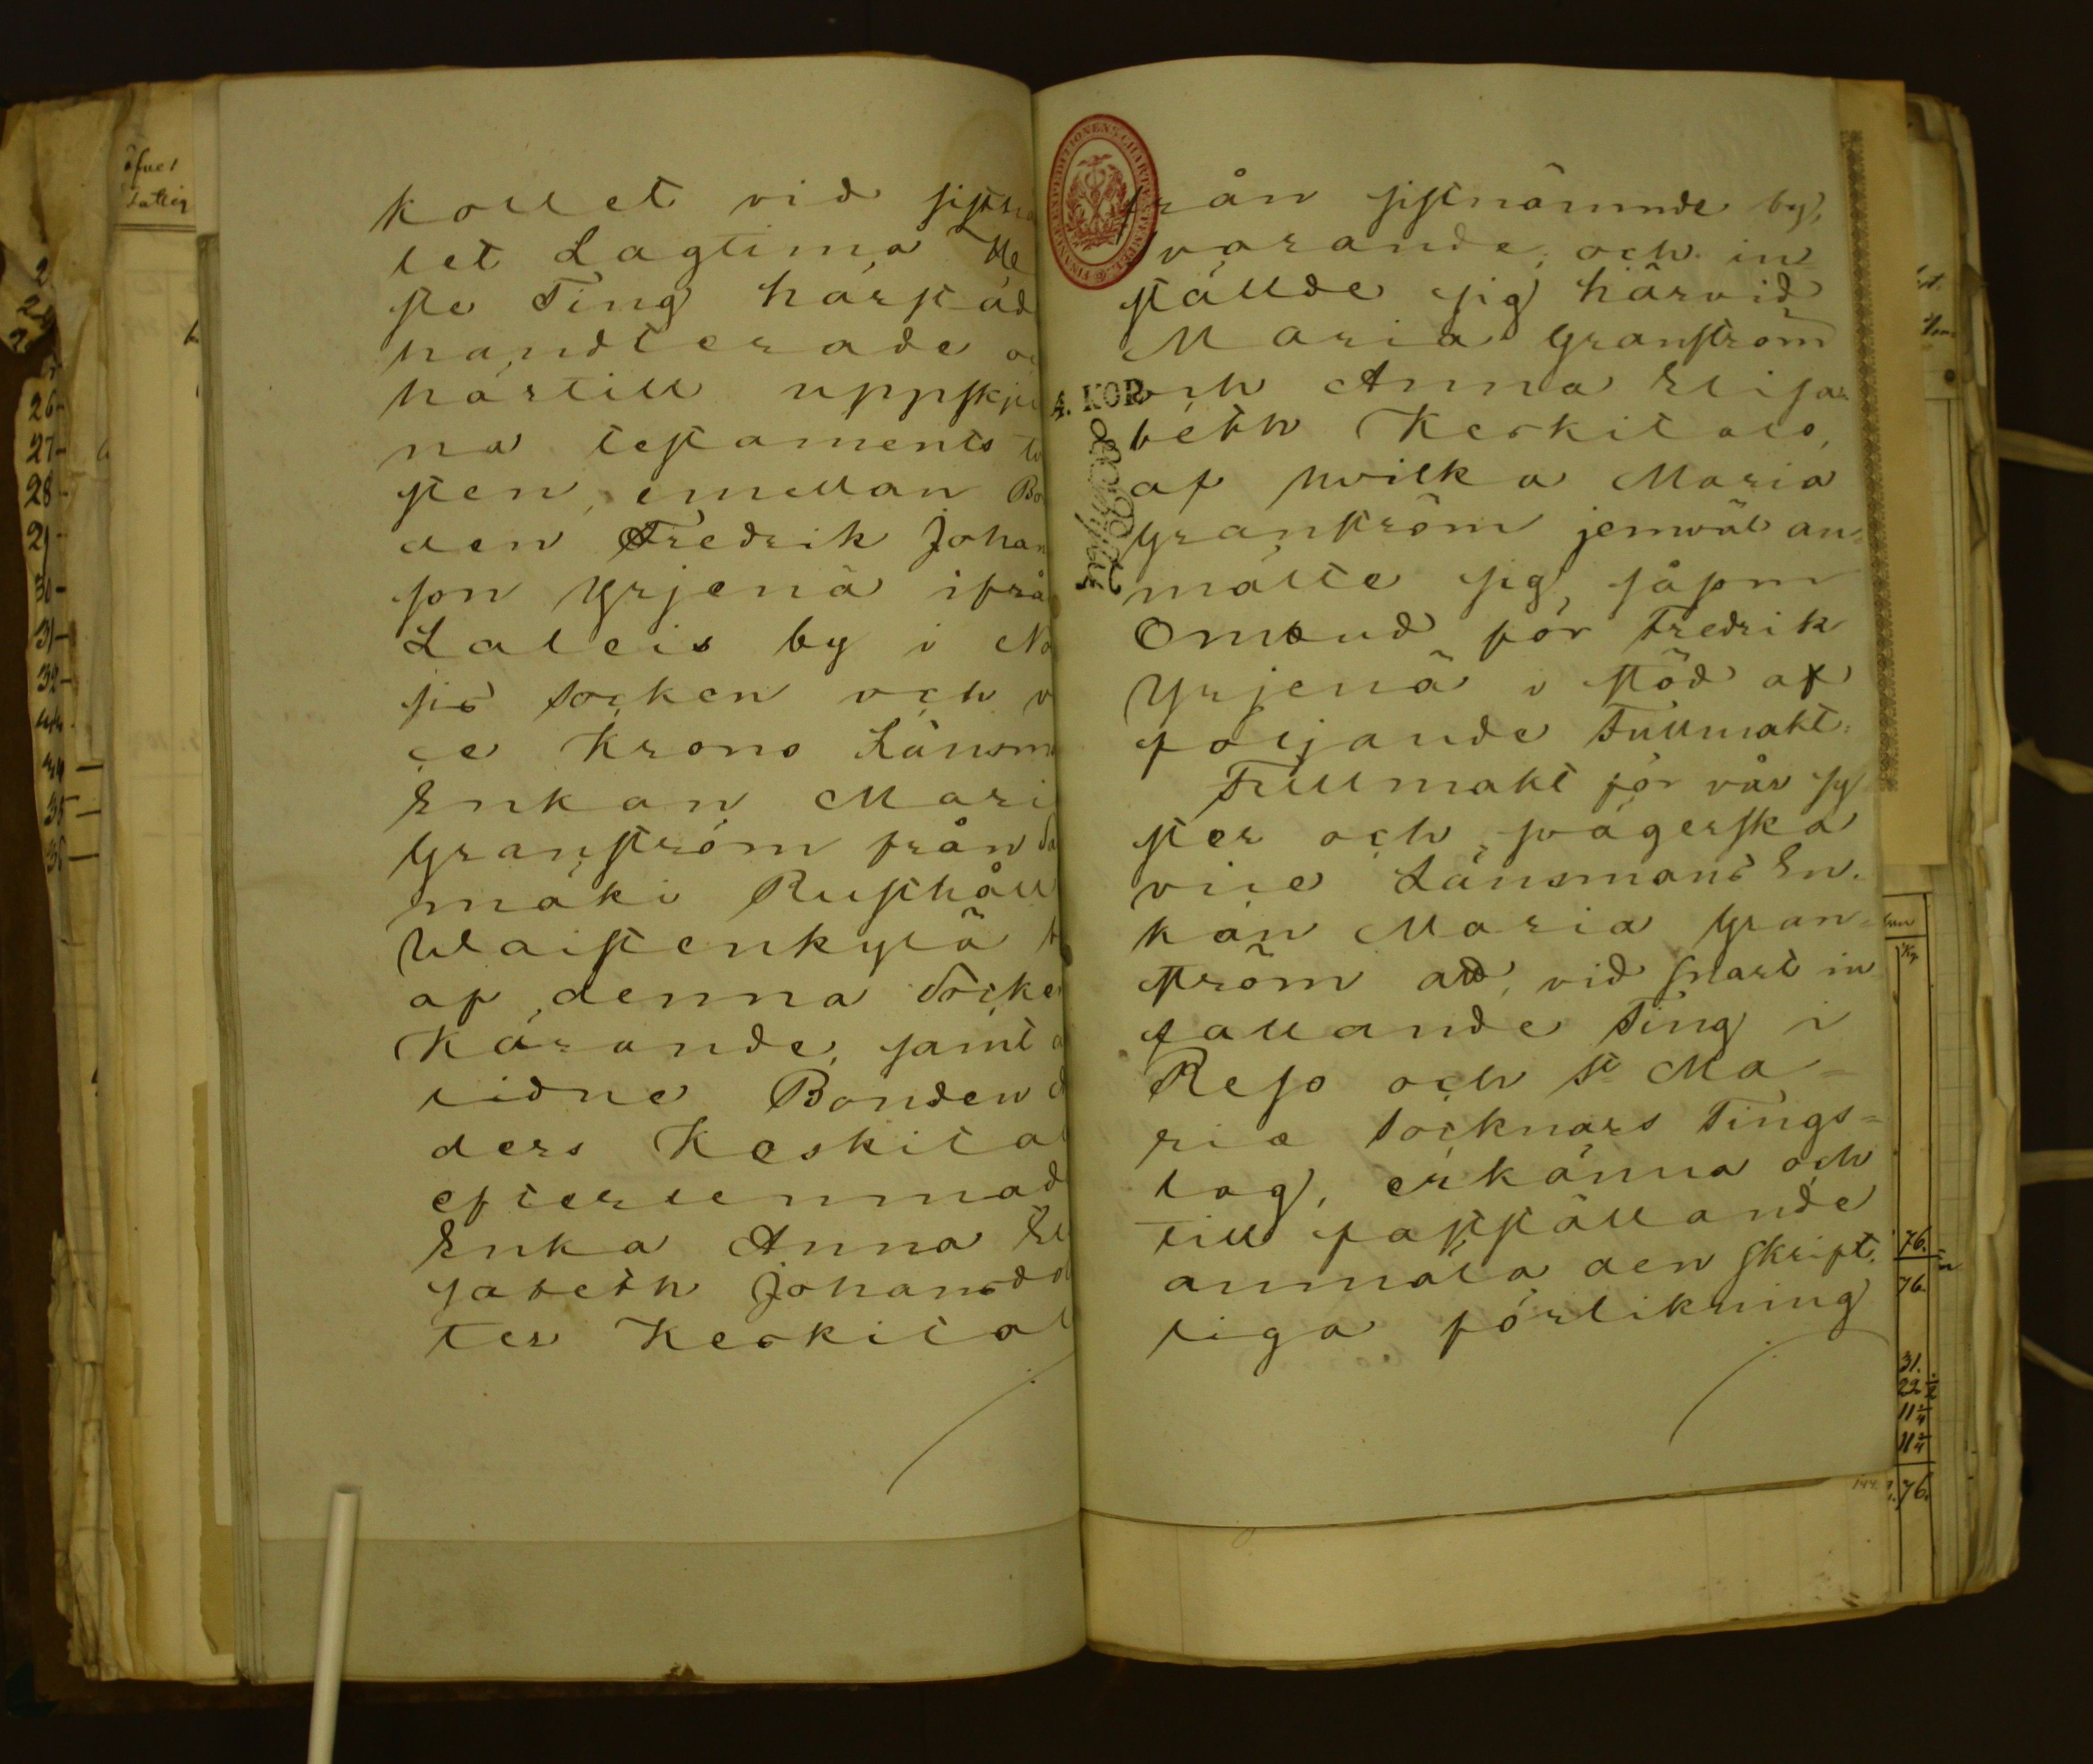 kollet vid sisthå
let Lagtima Hö
ste Ting härstäd
handterade o
härtill uppskju
na testaments tv
sten, emellan Bo
den Fredrik Johan
son Yrjenä ifrå
Laleis by i No
sis Socken och v
ce Krono Länsm
Enkan Mari
Granström från Sa
mäki Rusthåll
Waistenkylä b
af denna Socke
Kärande, samt a
lidne Bonden A
ders Keskital
efterlemnad
Enka Anna El
sabeth Johansdo
ter Keskital
från sistnämnde by,
varande; och in
ställde sig härvid
Maria Granström
och Anna Elisa
beth Keskitalo,
af hvilka Maria
Granström jemväl an
mälte sig, såsom
Ombud för Fredrik
Yrjenä i stöd af
följande Fullmakt:
Fullmakt för vår sy
ster och svägerska
vice Länsmans En
kan Maria Gran
ström att, vid snart in
fallande Ting i
Reso och St Ma=
riæ Socknars Tings=
lag, erkänna och
till fastställande
anmäla den skrift
liga förlikning
4. KOP.
26
27
28
29
30
31
32
35
76.
76.
31.
22 1/2
11 1/4
11 1/4
76.